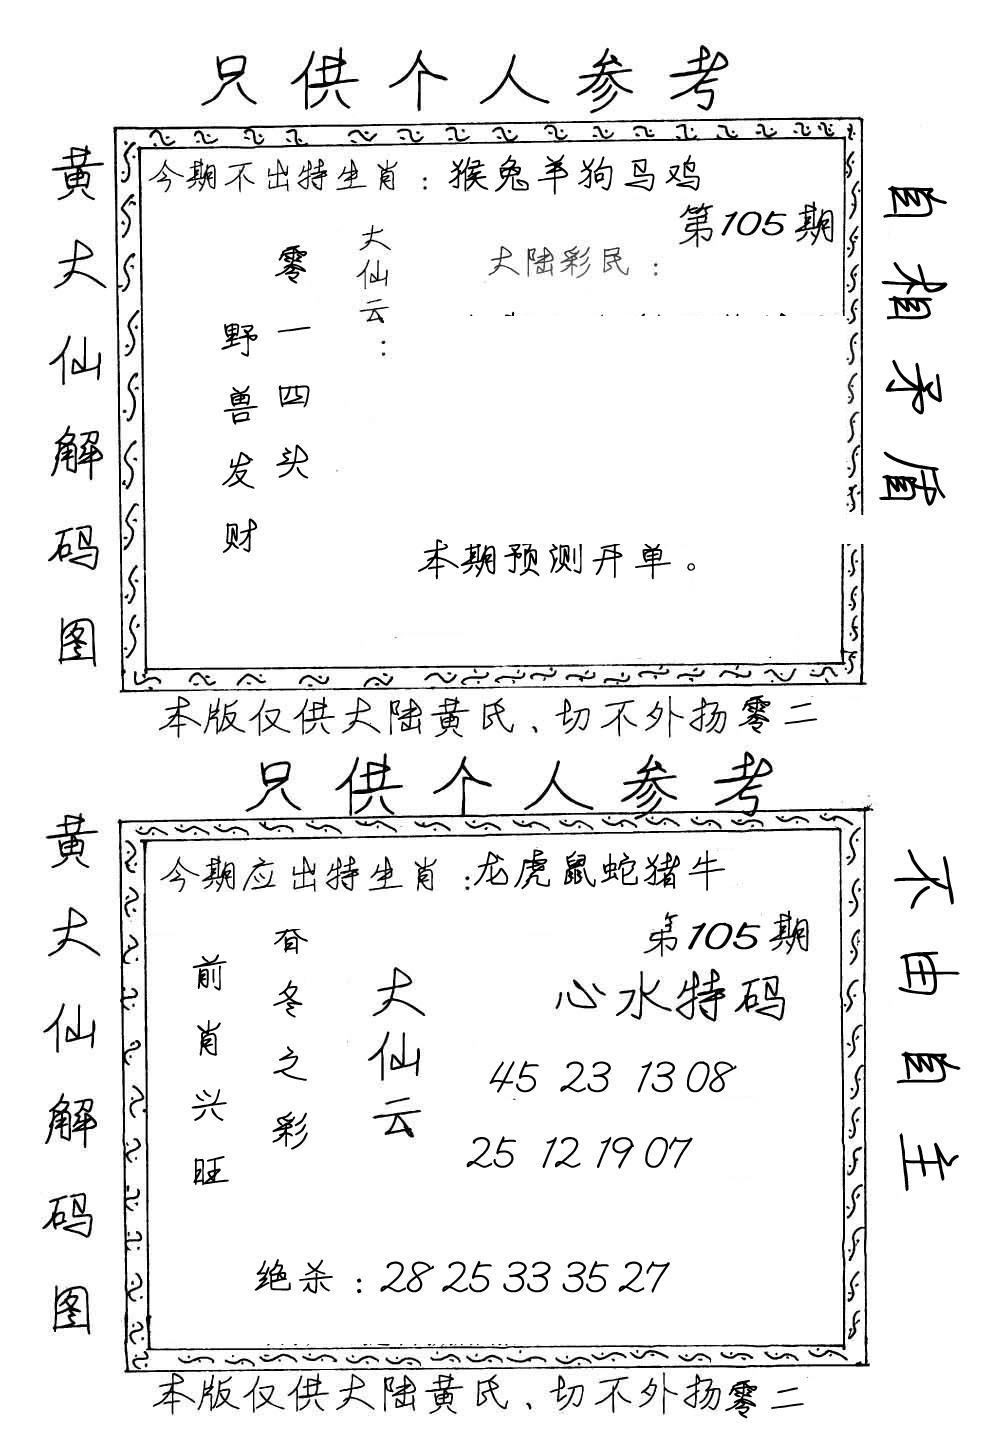 只供个人参考
黄大仙解码图
今期不出特生肖：猴兔羊狗马鸡
第105期
大陆彩民：
大仙云：
零一四头
野兽发财
本期预测开单。
自相矛盾
本版仅供大陆黄氏、切不外扬零二
只供个人参考
黄大仙解码图
今期应出特生肖：龙虎鼠蛇猪牛
第105期
心水特码
45 23 13 08
25 12 19 07
大仙云
春冬之彩
前肖兴旺
绝杀：28 25 33 35 27
不由自主
本版仅供大陆黄氏、切不外扬零二